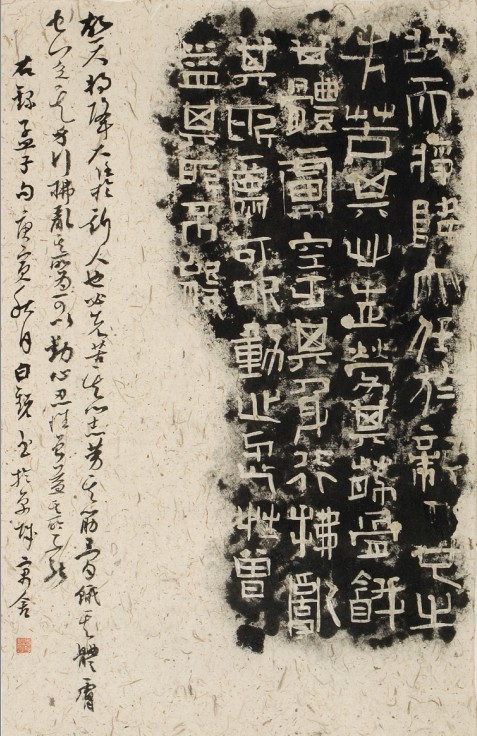 故天將降大任於斯人也必
先苦其心志勞其筋骨餓
其體膚空乏其身行拂亂
其所爲可以動心忍性曾
益其所不能
故天将降大任於斯人也必先苦其心志劳其筋骨餓其體膚
空乏其身行拂亂其所为可以動心忍性曾益其所不能
右録孟子句庚寅秋月白銳书於京城寓舍